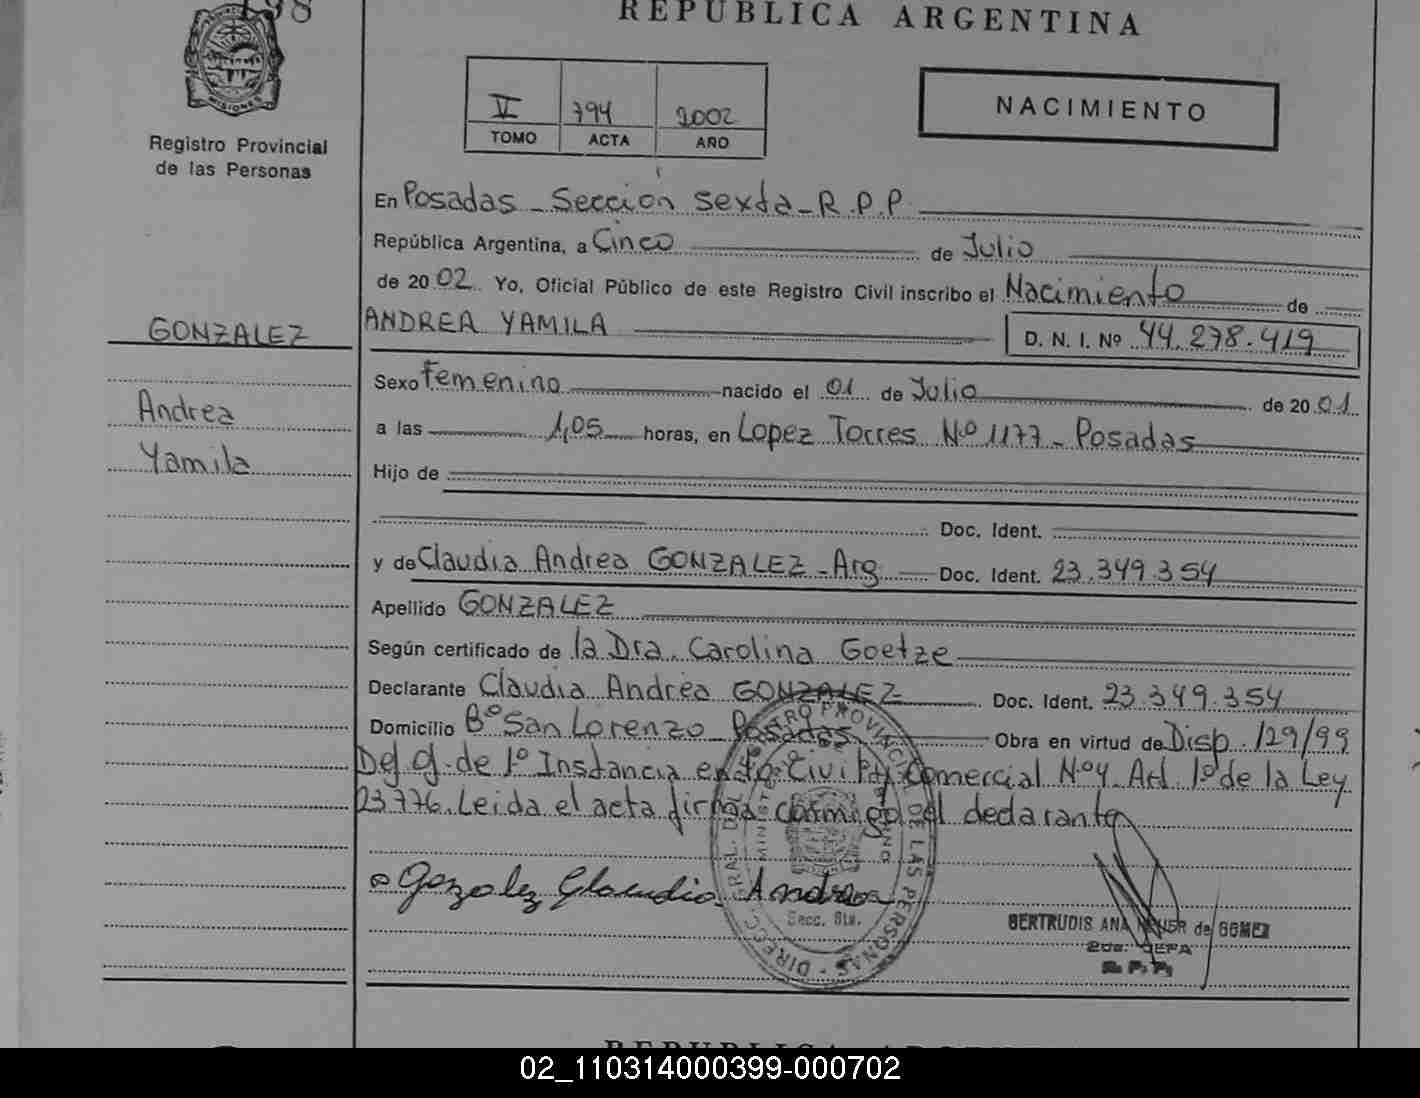 198
REPUBLICA ARGENTINA
MISIONES
Registro Provincial
de las Personas
V 794 2002
TOMO ACTA AÑO
NACIMIENTO
En Posadas - Sección Sexta - R.P.P.
República Argentina, a Cinco de Julio
de 2002 Yo, Oficial Público de este Registro Civil inscribo el Nacimiento de
GONZALEZ
ANDREA YAMILA D. N. I. Nº 44.278.419
Sexo Femenino nacido el 01 de Julio de 2001
Andrea
a las 1,05 horas, en Lopez Torres Nº 1177 - Posadas
Yamila
Hijo de
Doc. Ident.
y de Claudia Andrea GONZALEZ - Arg Doc. Ident. 23.349.354
Apellido GONZALEZ
Según certificado de la Dra. Carolina Goetze
Declarante Claudia Andrea GONZALEZ Doc. Ident. 23.349.354
Domicilio Bº San Lorenzo Posadas Obra en virtud de Disp. 129/99
de 1º Instancia en lo Civil y Comercial Nº4. Art. 1º de la Ley
23.776. Leida el acta firma conmigo el declarante
Gonzalez Claudia Andrea
DIRECC. GRAL. DEL REGISTRO PROVINCIAL DE LAS PERSONAS
MINISTERIO DE GOBIERNO
Secc. 6ta.
BERTRUDIS ANA de GOMEZ
2da. JEFA
R. P. P.
02_110314000399-000702